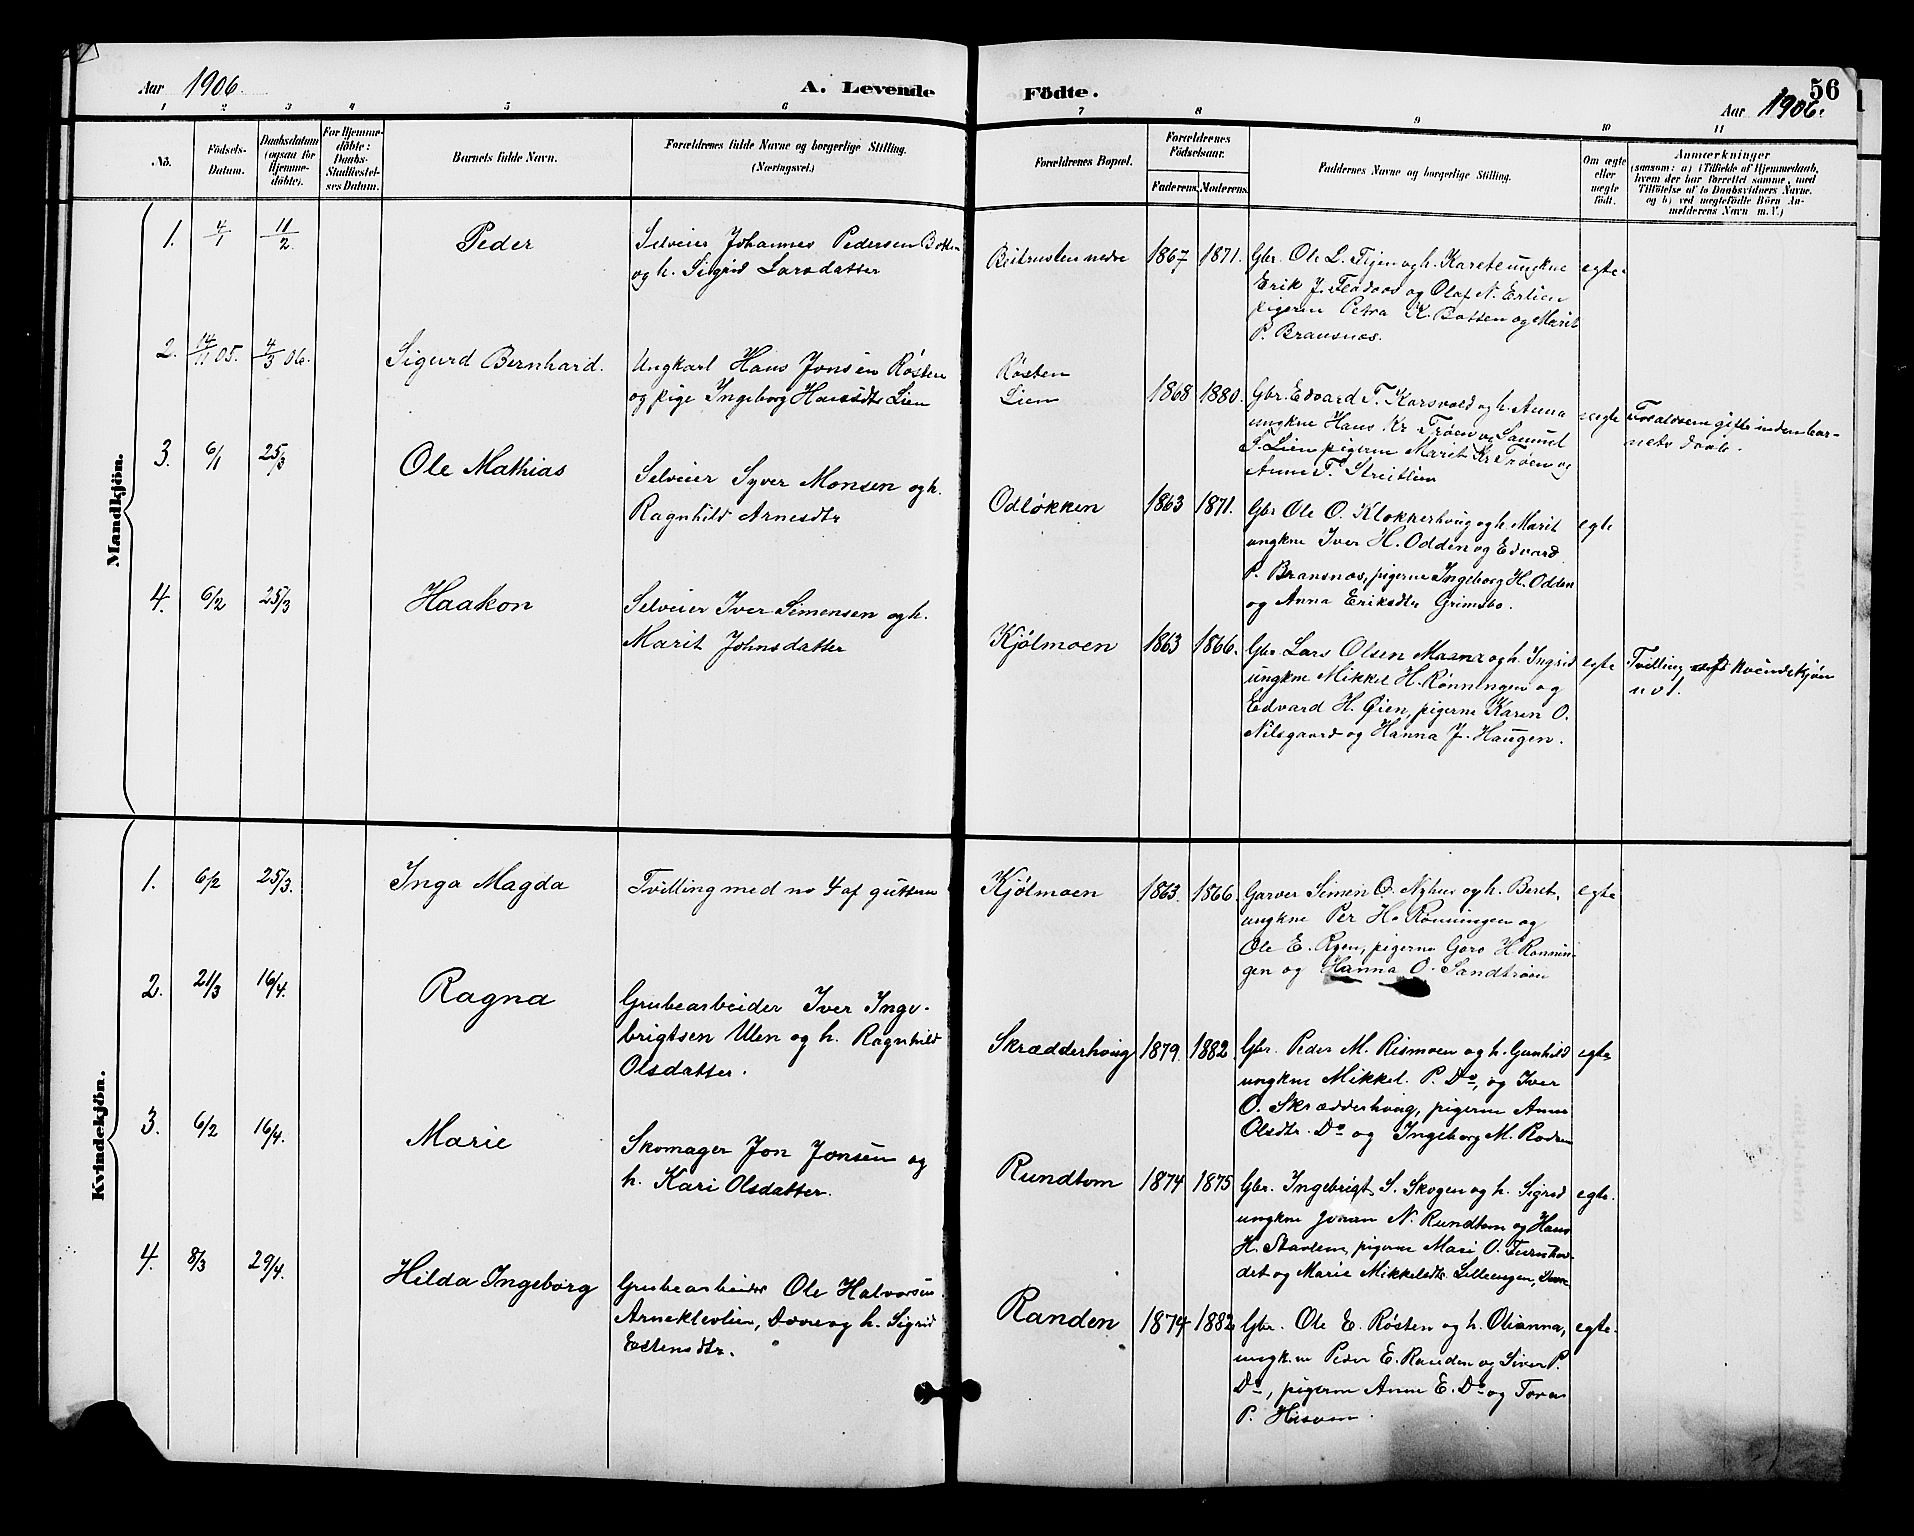 Aar 1906.
A. Levende
Födte.
56
Aar 1906.
1 2 3 4 5 6 7 8 9 10 11
No.
Födsels-
Datum.
Daabsdatum
(ogsaa for
Hjemme-
döbte).
For Hjemme-
döbte:
Daabs-
Stadfæstel-
ses Datum.
Barnets fulde Navn.
Forældrenes fulde Navne og borgerlige Stilling.
(Næringsvei.)
Forældrenes Bopæl.
Forældrenes
Födselsaar.
Faderens. Moderens.
Faddernes Navne og borgerlige Stilling.
Om ægte
eller
uægte
födt.
Anmærkninger
(saasom: a) i Tilfælde af Hjemmedaab,
hvem der har forrettet samme, med
Tilföielse af to Daabsvidners Navne.
og b) ved uægtefödte Börn An-
melderens Navn m. V.)
Mandkjön.
1. 4/1 11/2 Peder
Selveier Johannes Pedersen Botten
og h. Sigrid Larsdatter
Beitrusten nedre 1867 1871.
Gbr. Ole L. Tejen og h. Karete ungkne
Erik J. Fladoos og Olaf N. Erlien
pigerne Petra K. Botten og Marit
P. Bransnos.
egte
2. 14/11 05. 4/3 06. Sigurd Bernhard.
Ungkarl Hans Jonsen Røsten
og pige Ingeborg Hansdtr Lien
Røsten
Lien
1868 1880.
Gbr. Edvard T. Korsvold og h. Anna
ungkne Hans Kr Trøen og Samuel
S. Lien pigerne Marit Kr. Trøen og
Anne T. Streitlien
uegte
gifte inden bar-
nets daab.
3. 6/1 25/3 Ole Mathias
Selveier Syver Monsen og h.
Ragnhild Arnesdtr
Odløkken 1863 1871.
Gbr Ole O. Klokkerhoug og h. Marit
ungkne Iver H. Odden og Edvard
P. Bransnos, pigerne Ingeborg H. Odden
og Anna Eriksdtr Grimsbo.
egte
4. 6/2 25/3 Haakon
Selveier Iver Simensen og h.
Marit Johnsdatter
Kjølmoen 1863 1866.
Gbr Lars Olsen Moane og h. Ingrid
ungkne Mikkel H. Rønningen og
Edvard H. Øien, pigerne Karen O.
Nilsgaard og Hanna J. Haugen.
egte
Tvilling Kvindekjøn
no 1.
Kvindekjön.
1. 6/2 25/3. Inga Magda
Tvilling med no 4 af guttene
Kjølmoen 1863. 1866.
Garver Simen O. Nyhus og h. Beret,
ungkne Per H. Rønningen og
Ole E. Ryen, pigerne Goro H Rønnin-
gen og Hanna O. Sandtrøen
egte
2. 21/3 16/4. Ragna
Grubearbeider Iver Inge-
brigtsen Ulen og h. Ragnhild
Olsdatter.
Skrædderhoug 1879. 1882.
Gbr. Peder M. Rismoen og h. Gunhild
ungkne Mikkel P. Do, og Iver
O. Skrædderhoug, pigerne Anne
Olsdtr. Do og Ingeborg M. Rodsen
egte
3. 6/2 16/4. Marie
Skomager Jon Jonsen og
h. Kari Olsdatter.
Rundtom 1874 1875
Gbr. Ingebrigt S. Skogen og h. Sigrid
ungkne N. Rundtom og Hans
H. Stavlene, pigerne Mari O.
det og Marie Mikkelsdtr. Lilleengen, Dovre
egte.
4. 8/3 29/4. Hilda Ingeborg
Grubearbeider Ole Halvorsen
Arneklevlien, Dovre og h. Sigrid
Estensdtr.
Randen 1874 1882
Gbr. Ole E. Røsten og h. Olianna,
ungkne Peder E. Randen og Siver P.
Do, pigerne Anne E. Do og Tora
P.
egte.